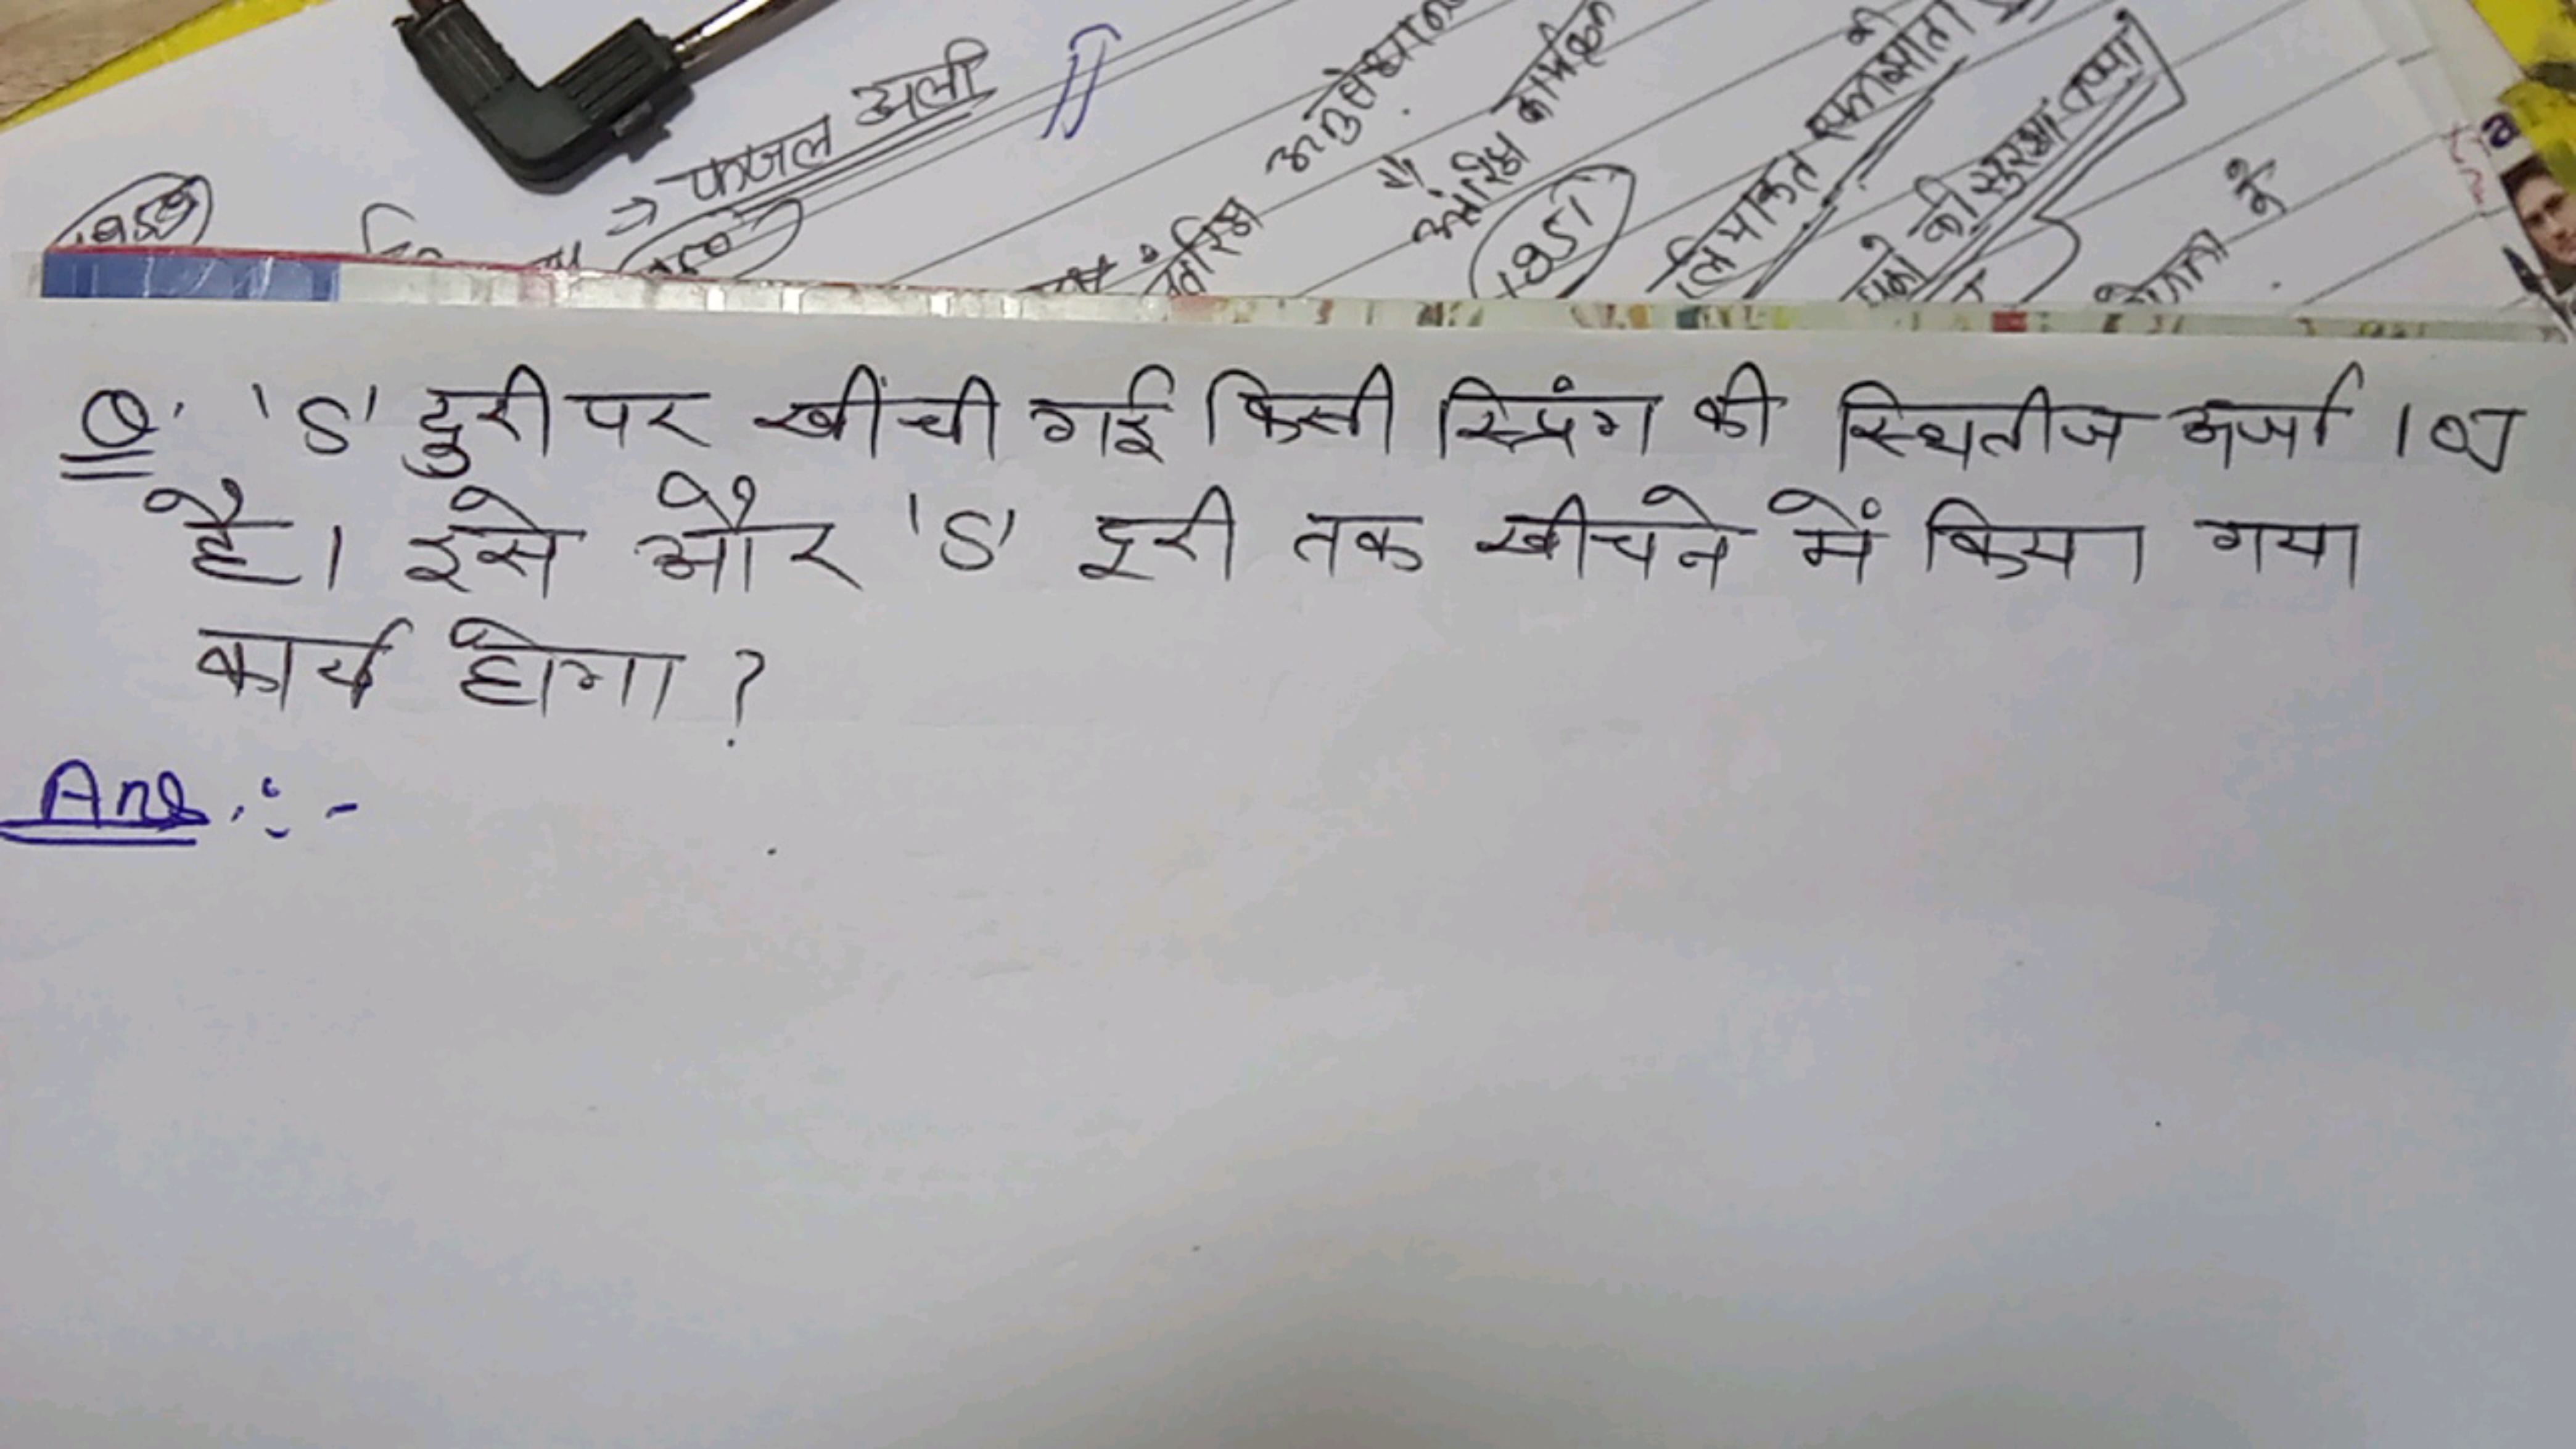 → फजल अली
1951
की सुरक्षा
Q. 'S' दुरी पर खींची गई किसी स्प्रिंग की स्थितीज ऊर्जा 10J
है। इसे और 'S' दूरी तक खीचने में किया गया
कार्य होगा ?
Ans. : -